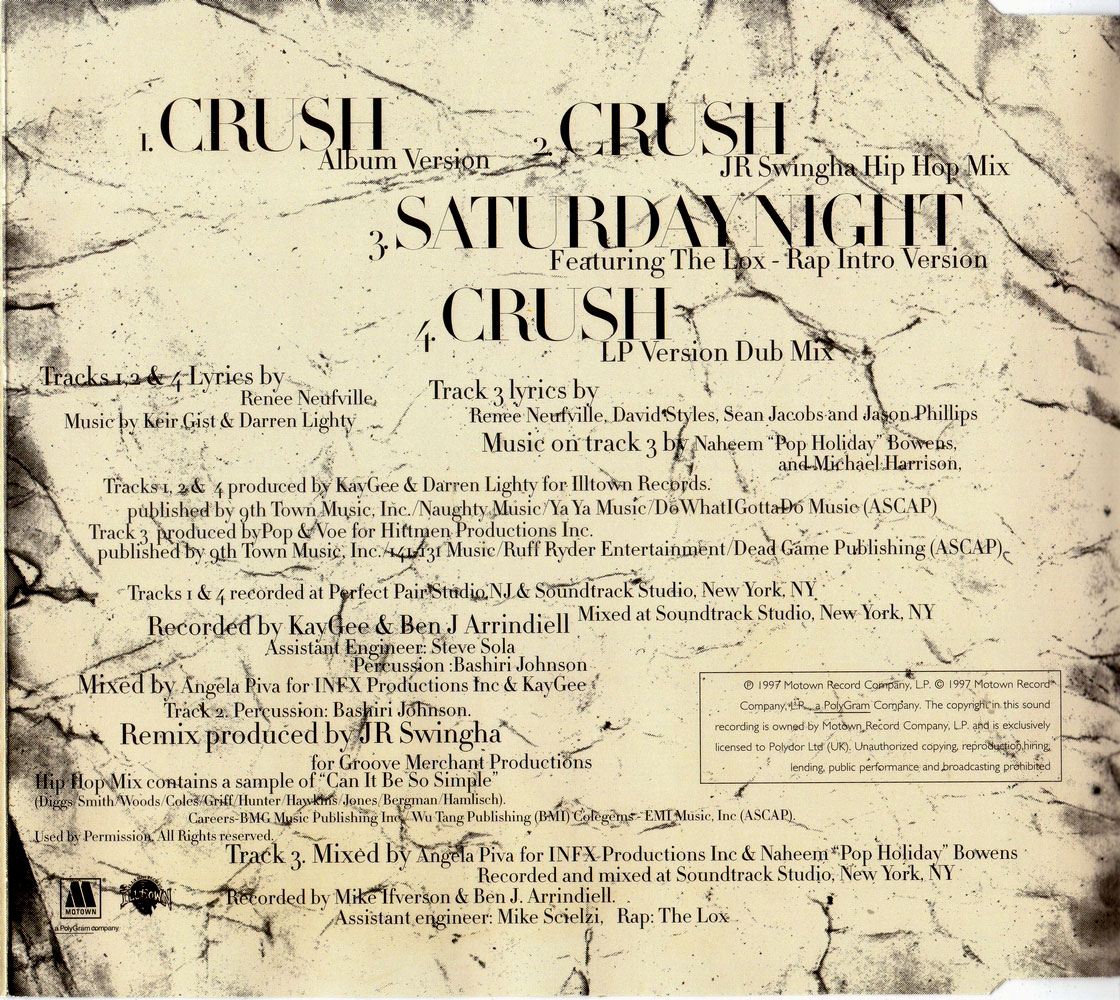 1. CRUSH
Album Version
2. CRUSH
JR Swingha Hip Hop Mix
3. SATURDAY NIGHT
Featuring The Lox - Rap Intro Version
4. CRUSH
LP Version Dub Mix
Tracks 1,2 & 4 Lyrics by
Renee Neufville,
Music by Keir Gist & Darren Lighty
Track 3 lyrics by
Renee Neufville, David Styles, Sean Jacobs and Jason Phillips
Music on track 3 by Naheem "Pop Holiday" Bowens,
and Michael Harrison,
Tracks 1, 2 & 4 produced by KayGee & Darren Lighty for Illtown Records.
published by 9th Town Music, Inc./Naughty Music/Ya Ya Music/DoWhatIGottaDo Music (ASCAP)
Track 3 produced by Pop & Voe for Hittmen Productions Inc.
published by 9th Town Music, Inc./141131 Music/Ruff Ryder Entertainment/Dead Game Publishing (ASCAP),
Tracks 1 & 4 recorded at Perfect Pair Studio,NJ & Soundtrack Studio, New York, NY
Mixed at Soundtrack Studio, New York, NY
Recorded by KayGee & Ben J Arrindiell
Assistant Engineer: Steve Sola
Percussion :Bashiri Johnson
Mixed by Angela Piva for INFX Productions Inc & KayGee
Track 2. Percussion: Bashiri Johnson.
Remix produced by JR Swingha
for Groove Merchant Productions
Hip Hop Mix contains a sample of "Can It Be So Simple"
(Diggs/Smith/Woods/Coles/Griff/Hunter/Hawkins/Jones/Bergman/Hamlisch).
Careers-BMG Music Publishing Inc/ Wu Tang Publishing (BMI) Colegems - EMI Music, Inc (ASCAP).
Used by Permission. All Rights reserved.
Track 3. Mixed by Angela Piva for INFX Productions Inc & Naheem "Pop Holiday" Bowens
Recorded and mixed at Soundtrack Studio, New York, NY
Recorded by Mike Ifverson & Ben J. Arrindiell.
Assistant engineer: Mike Scielzi, Rap: The Lox
℗ 1997 Motown Record Company, L.P. © 1997 Motown Record
Company, L.P., a PolyGram Company. The copyright in this sound
recording is owned by Motown Record Company, L.P. and is exclusively
licensed to Polydor Ltd (UK). Unauthorized copying, reproduction,hiring,
lending, public performance and broadcasting prohibited
M
MOTOWN
a PolyGram company
ILLTOWN